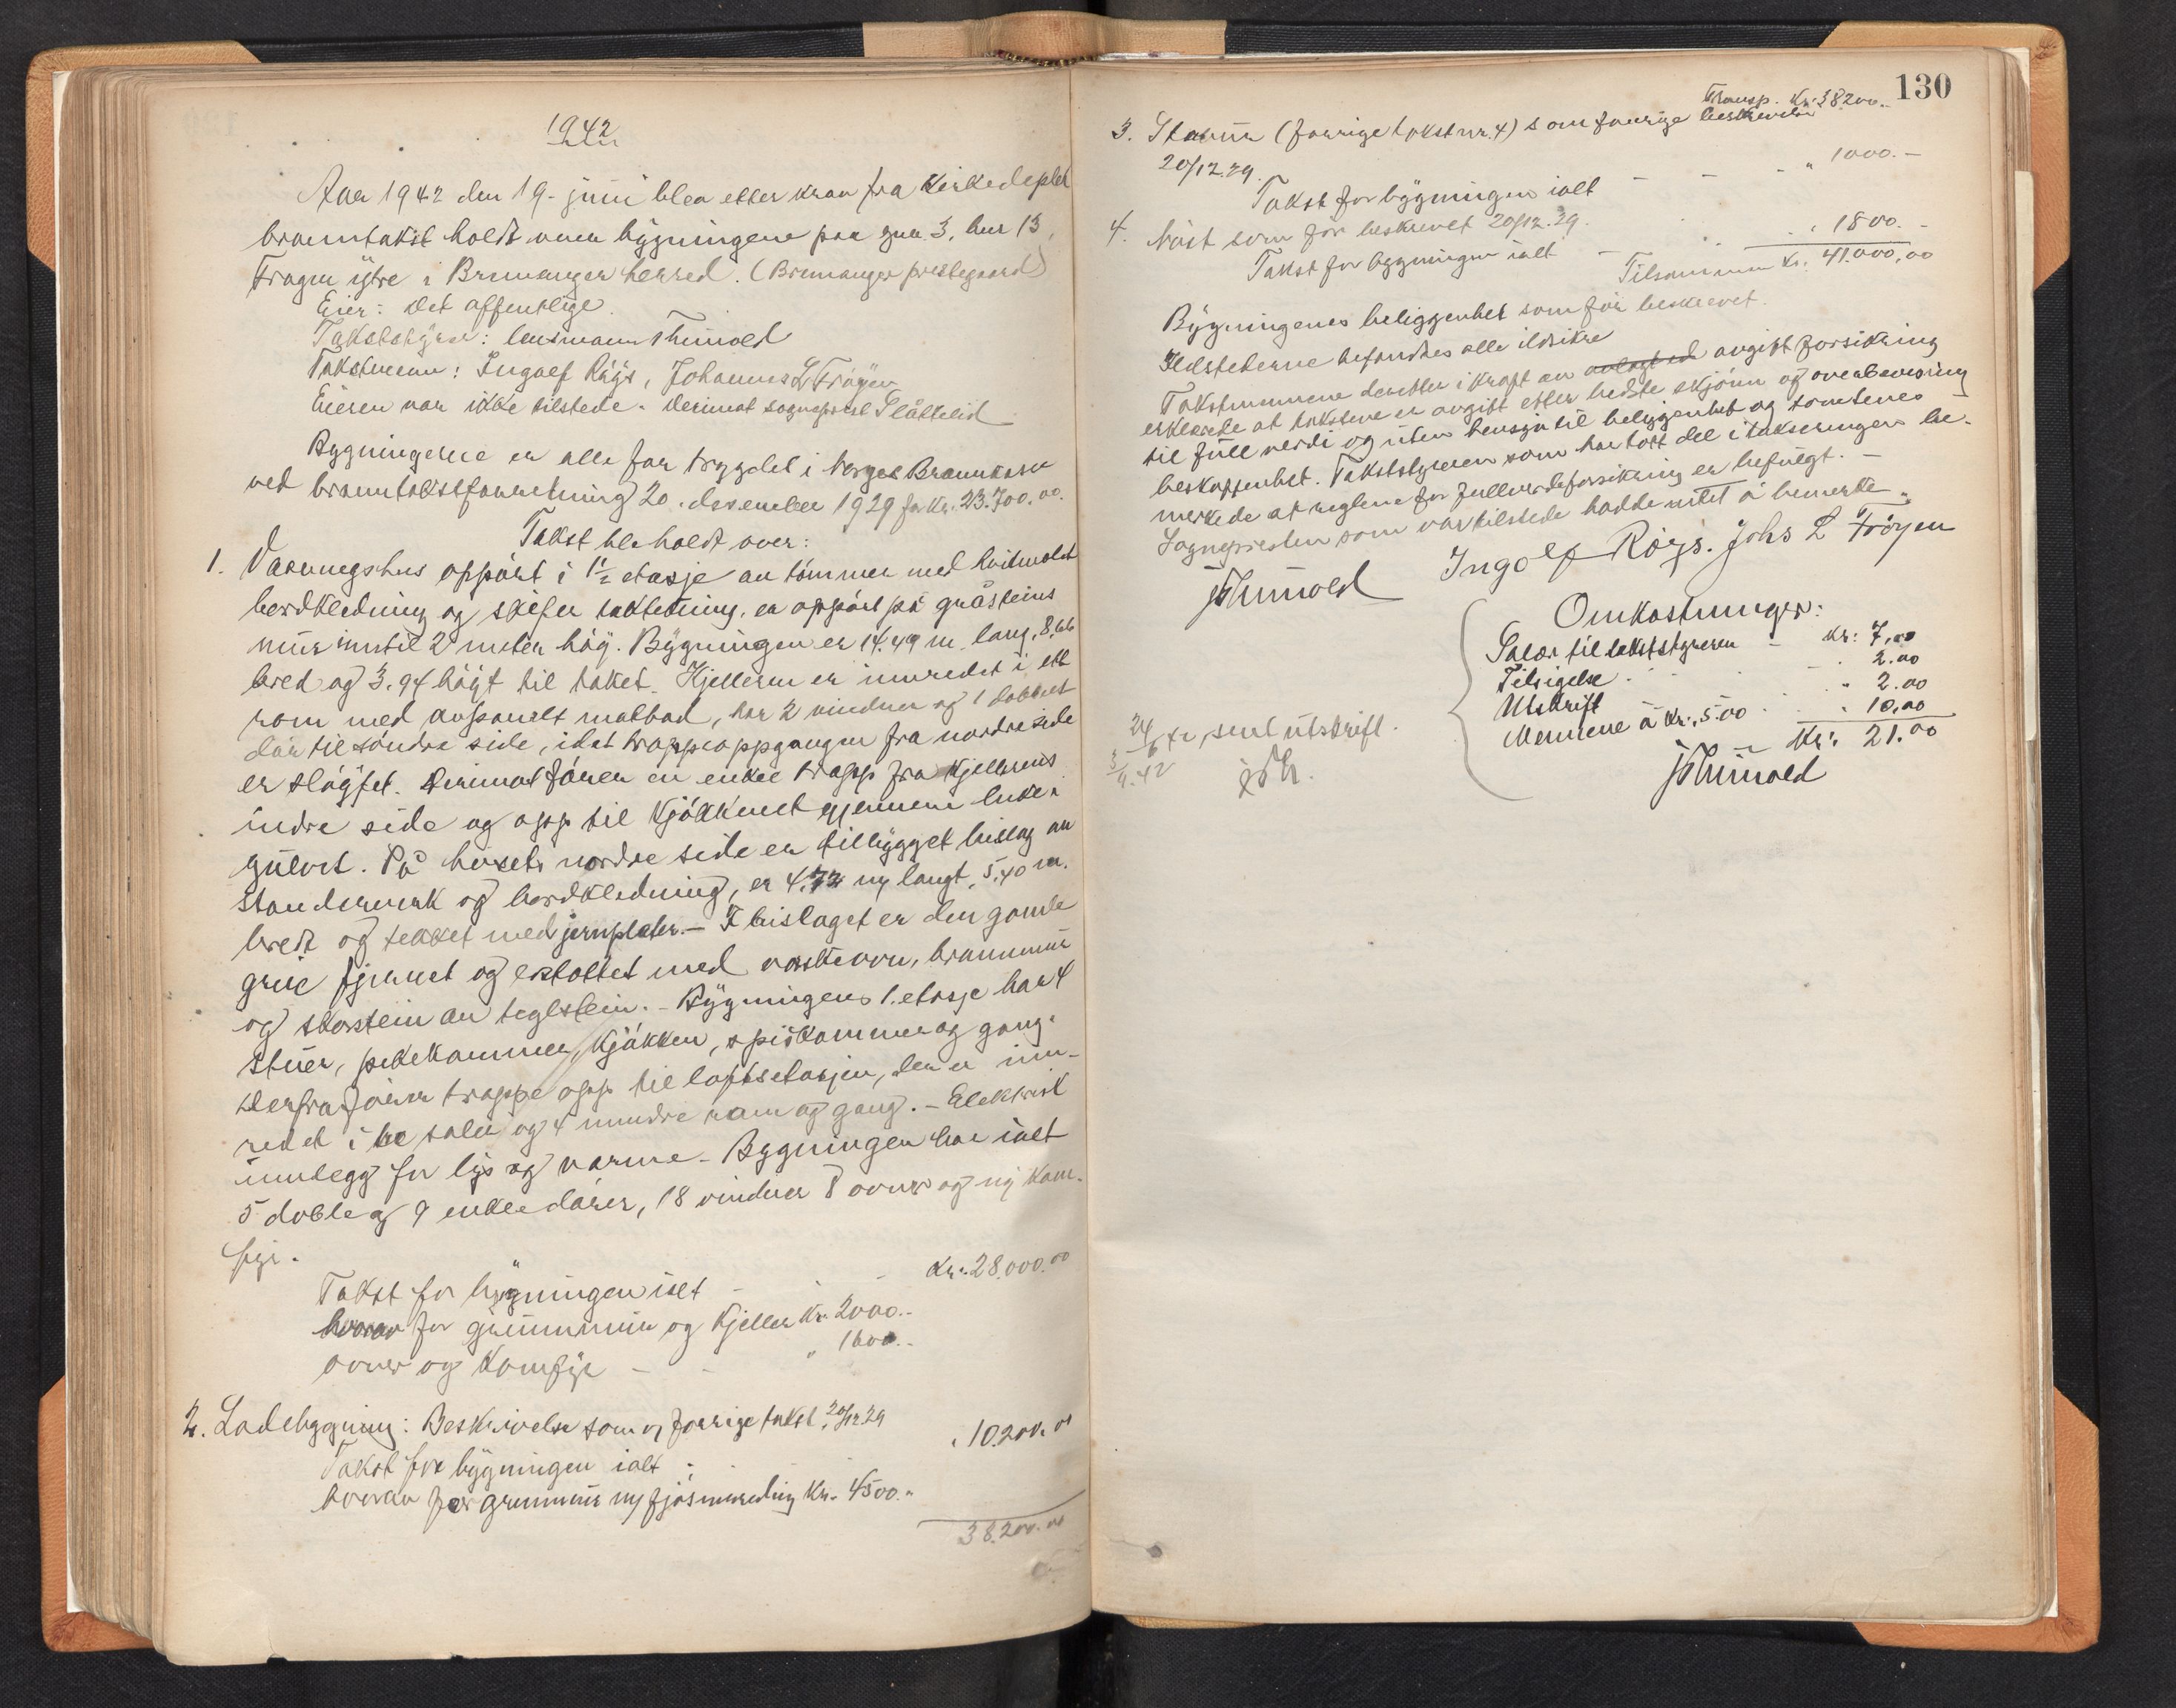 1942
Aar 1942 den 19. juni blev etter krav fra Kirkedepted
branntakst holdt over bygningene paa gnr. 3, bnr 13,
Frøyen ytre i Bremanger herred. (Bremanger prestegaard)
Eier: det offentlige.
Takststyrer: lensmann Thinold
Takstmenn: Ingolf Röys, Johannes L Fröyen
Eieren var ikke tilstede. Derimot sogneprest Slåttelid
Bygningerne er alle før trygdet i Norges Brannkasse
ved branntakstforretning 20. desember 1929 for kr. 23.700.00.
Takst ble holdt over:
1. Vaaningshus oppført i 1½ etasje av tømmer med hvitmalt
bordkledning og skifer taktekning, er oppført på gråsteins
mur inntil 2 meter høy. Bygningen er 14.49 m. lang, 8,66
bred og 3.94 høyt til taket. Kjelleren er innredet i ett
rom med avpanelt matbod, har 2 vinduer og 1 dobbelt
dør til søndre side, idet trappeoppgangen fra nordre side
er sløyfet. Derimot fører en enkel trapp fra kjellerens
indre side og opp til kjøkkenet gjennem luke i
gulvet. På husets nordre side er tilbygget bislag av
stenderverk og bordkledning, er 4.72 m langt, 5.40 m.
bredt og tekket med jernplater. - I bislaget er den gamle
grue fjernet og erstattet med vaskeovn, brannmur
og skorstein av teglstein. - Bygningens 1. etasje har 4
stuer, pikekammer, kjøkken, spiskammer og gang.
Derfra fører trappe opp til loftsetasjen, der er inn-
redet i to saler og 4 mindre rom og gang. - Elektrisk
innlegg for lys og varme. - Bygningen har ialt
5 doble og 9 enkle dører, 18 vinduer 8 ovner og ny kom-
fyr.
Takst for bygningen ialt - - - Kr. 28.000.00
hvorav for grunnmur og kjeller Kr. 2000.-
ovner og komfyr - - " 1600.-
2. Ladebygning: Beskrivelse som forrige takst 20/12 29
Takst for bygningen ialt : " 10.200.00
hvorav for grunnmur ny fjøsinnreding Kr. 4500.-
38.200.00
130
Transp. Kr. 38200.-
3. Stabur (forrige takst nr. 4) som forrige beskrivelse
20/12.29.
Takst for bygningen ialt - - - " 1000.-
4. Nöst som før beskrevet 20/12.29.
Takst for bygningen ialt - " 1800.-
Tilsammen Kr. 41.000,00
Bygningenes beliggenhet som før beskrevet.
Ildstederne befandtes alle ildsikre
Takstmennene deretter i kraft av avlagt ed avgitt forsikring
erklærte at takstene er avgitt etter bedste skjønn og overbevisning
til full verdi og uten hensyn til beliggenhet og tomtenes
beskaffenhet. Takststyreren som har tatt del i takseringen be-
merkede at reglene for fullverdiforsikring er befulgt. -
Sognepresten som var tilstede hadde intet å bemerke.
Thinold Ingolf Röys. Johs L Fröyen
Omkostninger:
Salær til takststyreren - kr: 7,00
Tilsigelse . . . 2.00
Utskrift . . " 2.00
Mennene à Kr. 5.00 . . 10,00
Kr. 21.00
Thinold
24/6 42 sent utskrift.